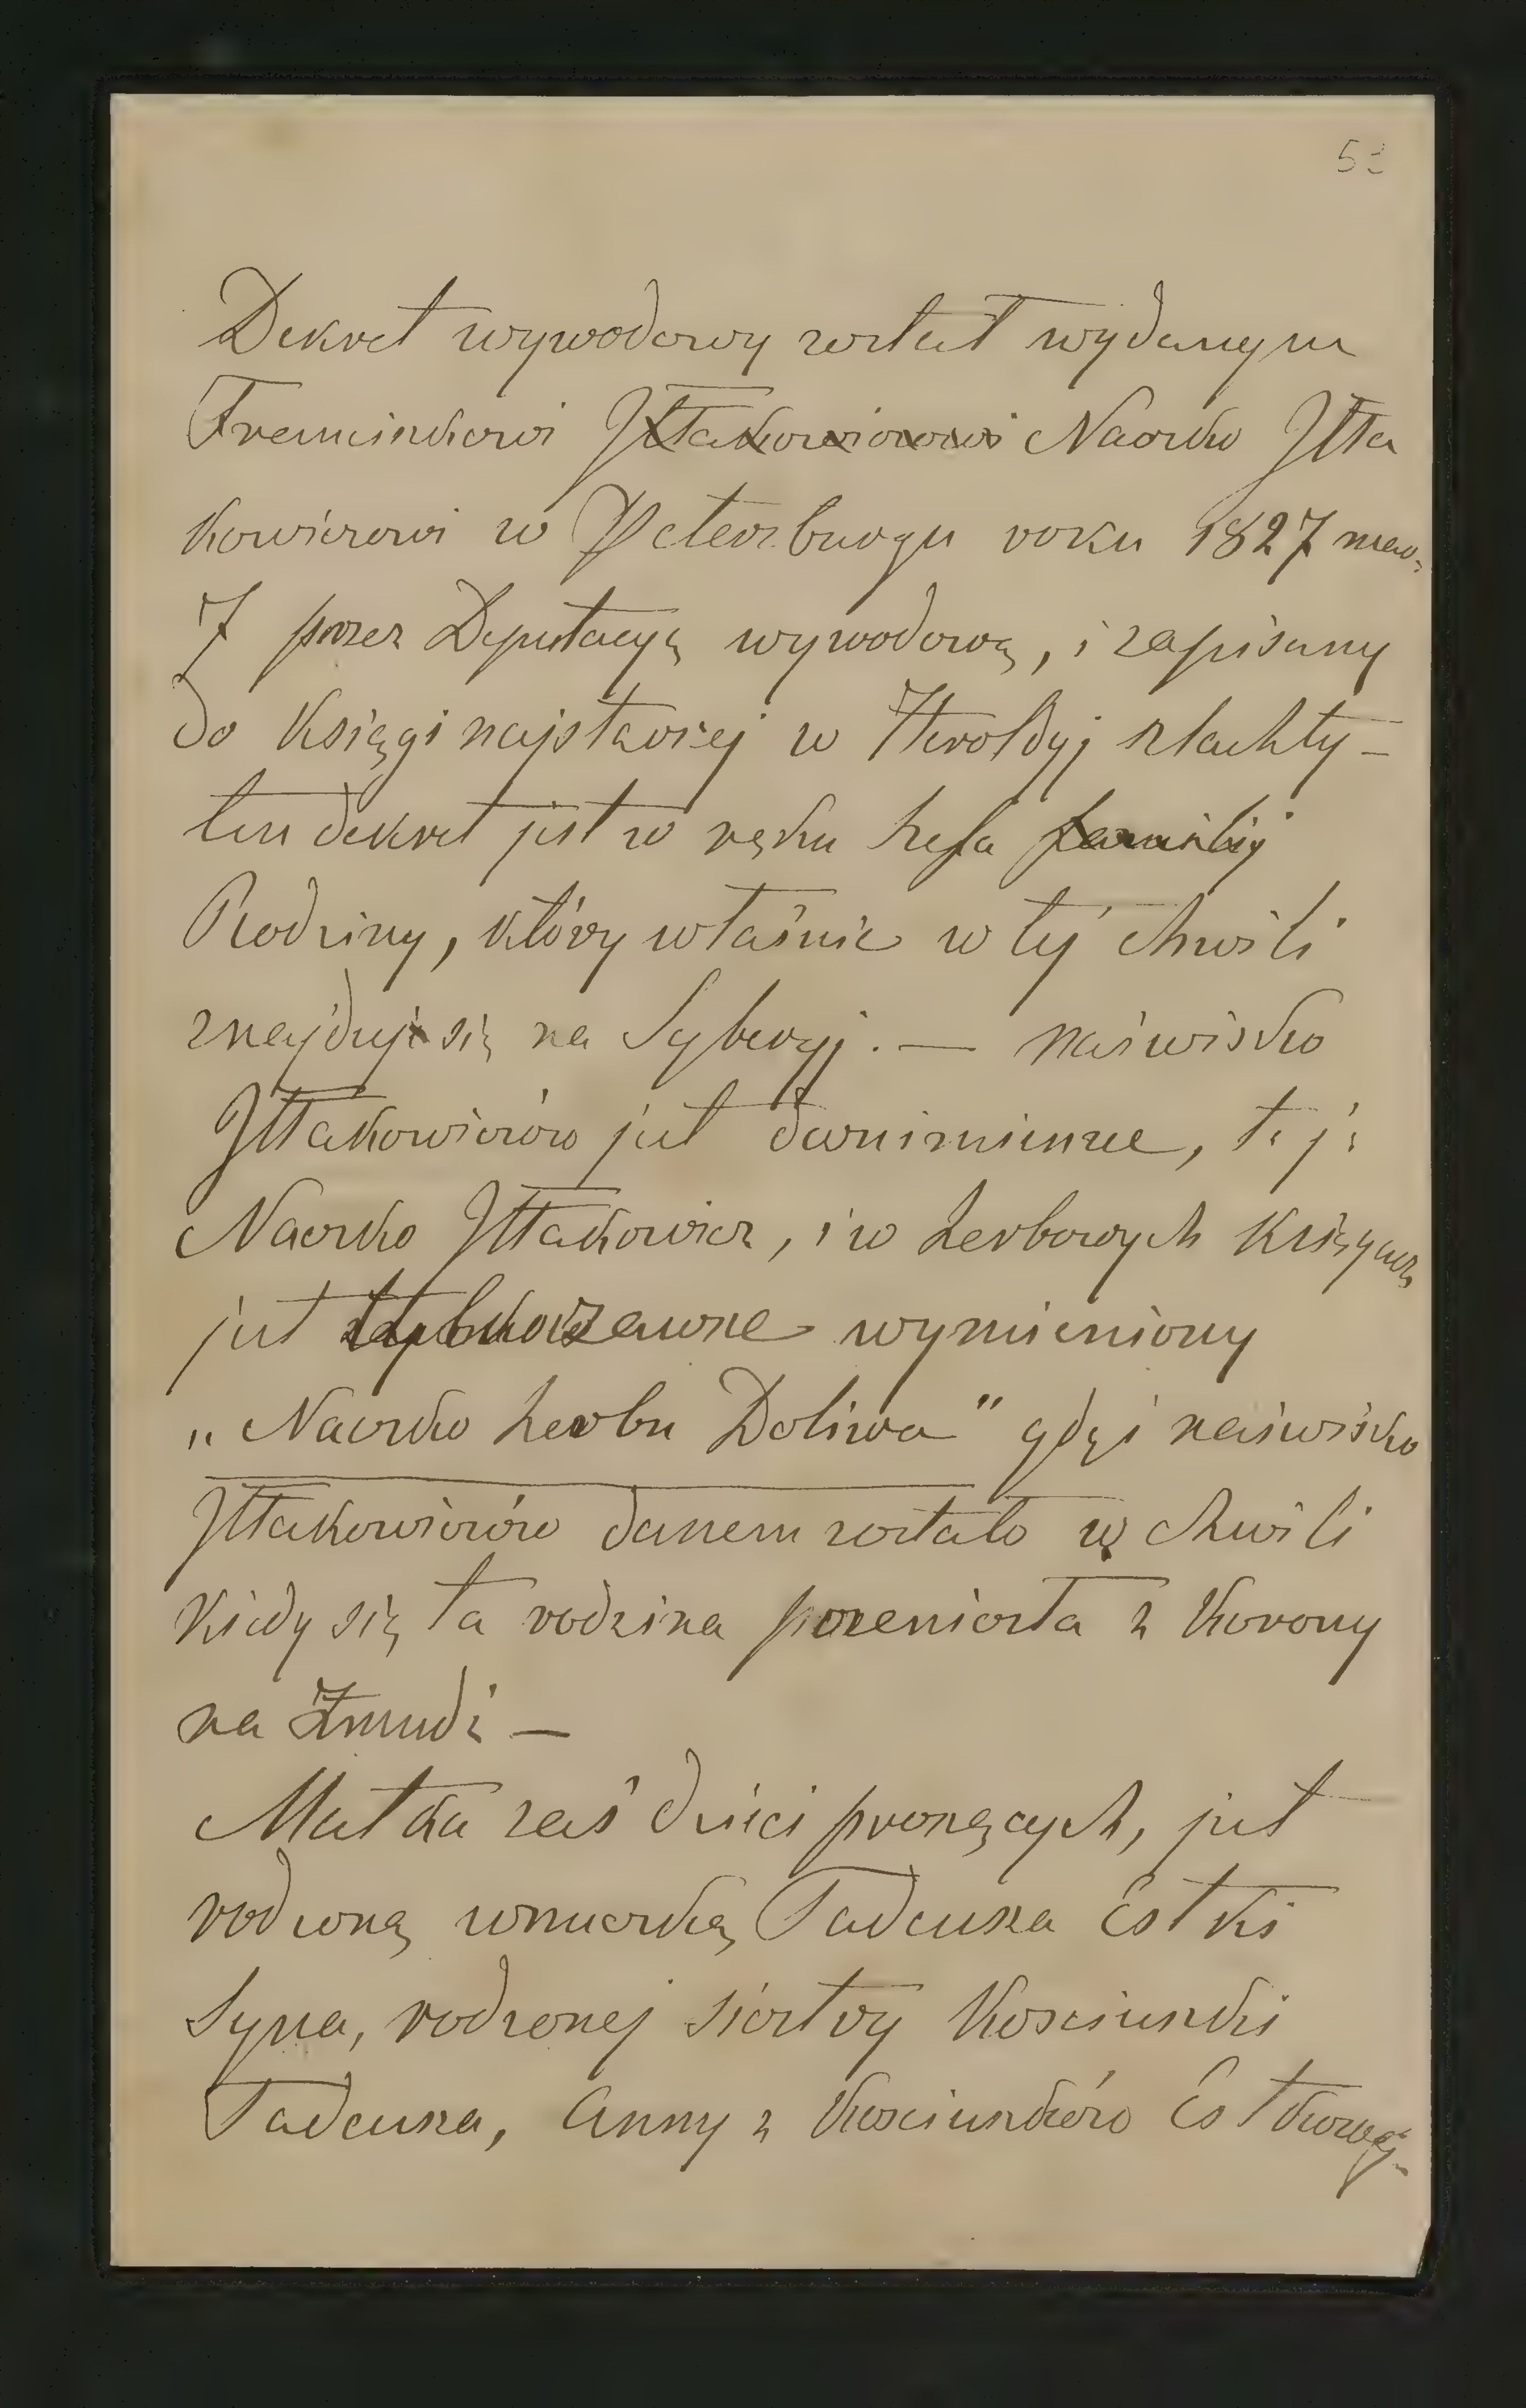 Dekret wywodowy został wydanym
Franciszkowi Iłłakowiczowi Naczko Iłła
kowiczowi w Petersburgu roku 1827
7 przez Deputacyą wywodową, i zapisany
do Księgi najstarszej w Heroldyj szlachty –
ten dekret jest w ręku szefa familij
Rodziny, który właśnie w tej chwili
znajduje się na Syberyj. — naświsko
Iłłakowiczów jest dwuimienne, t. j:
Naczko Iłłakowicz, i w herbowych Księgach
jest wymieniony
„Naczko herbu Doliwa" gdyż naświsko
Iłłakowiczów danem zostało w chwili
kiedy się ta rodzina przeniosła z Korony
na Żmudź —
Matka zaś dzieci proszących, jest
rodzoną wnuczką Tadeusza Estki
Syna, rodzonej siostry Kosciuszki
Tadeusza, Anny z Kosciuszków Estkowej.